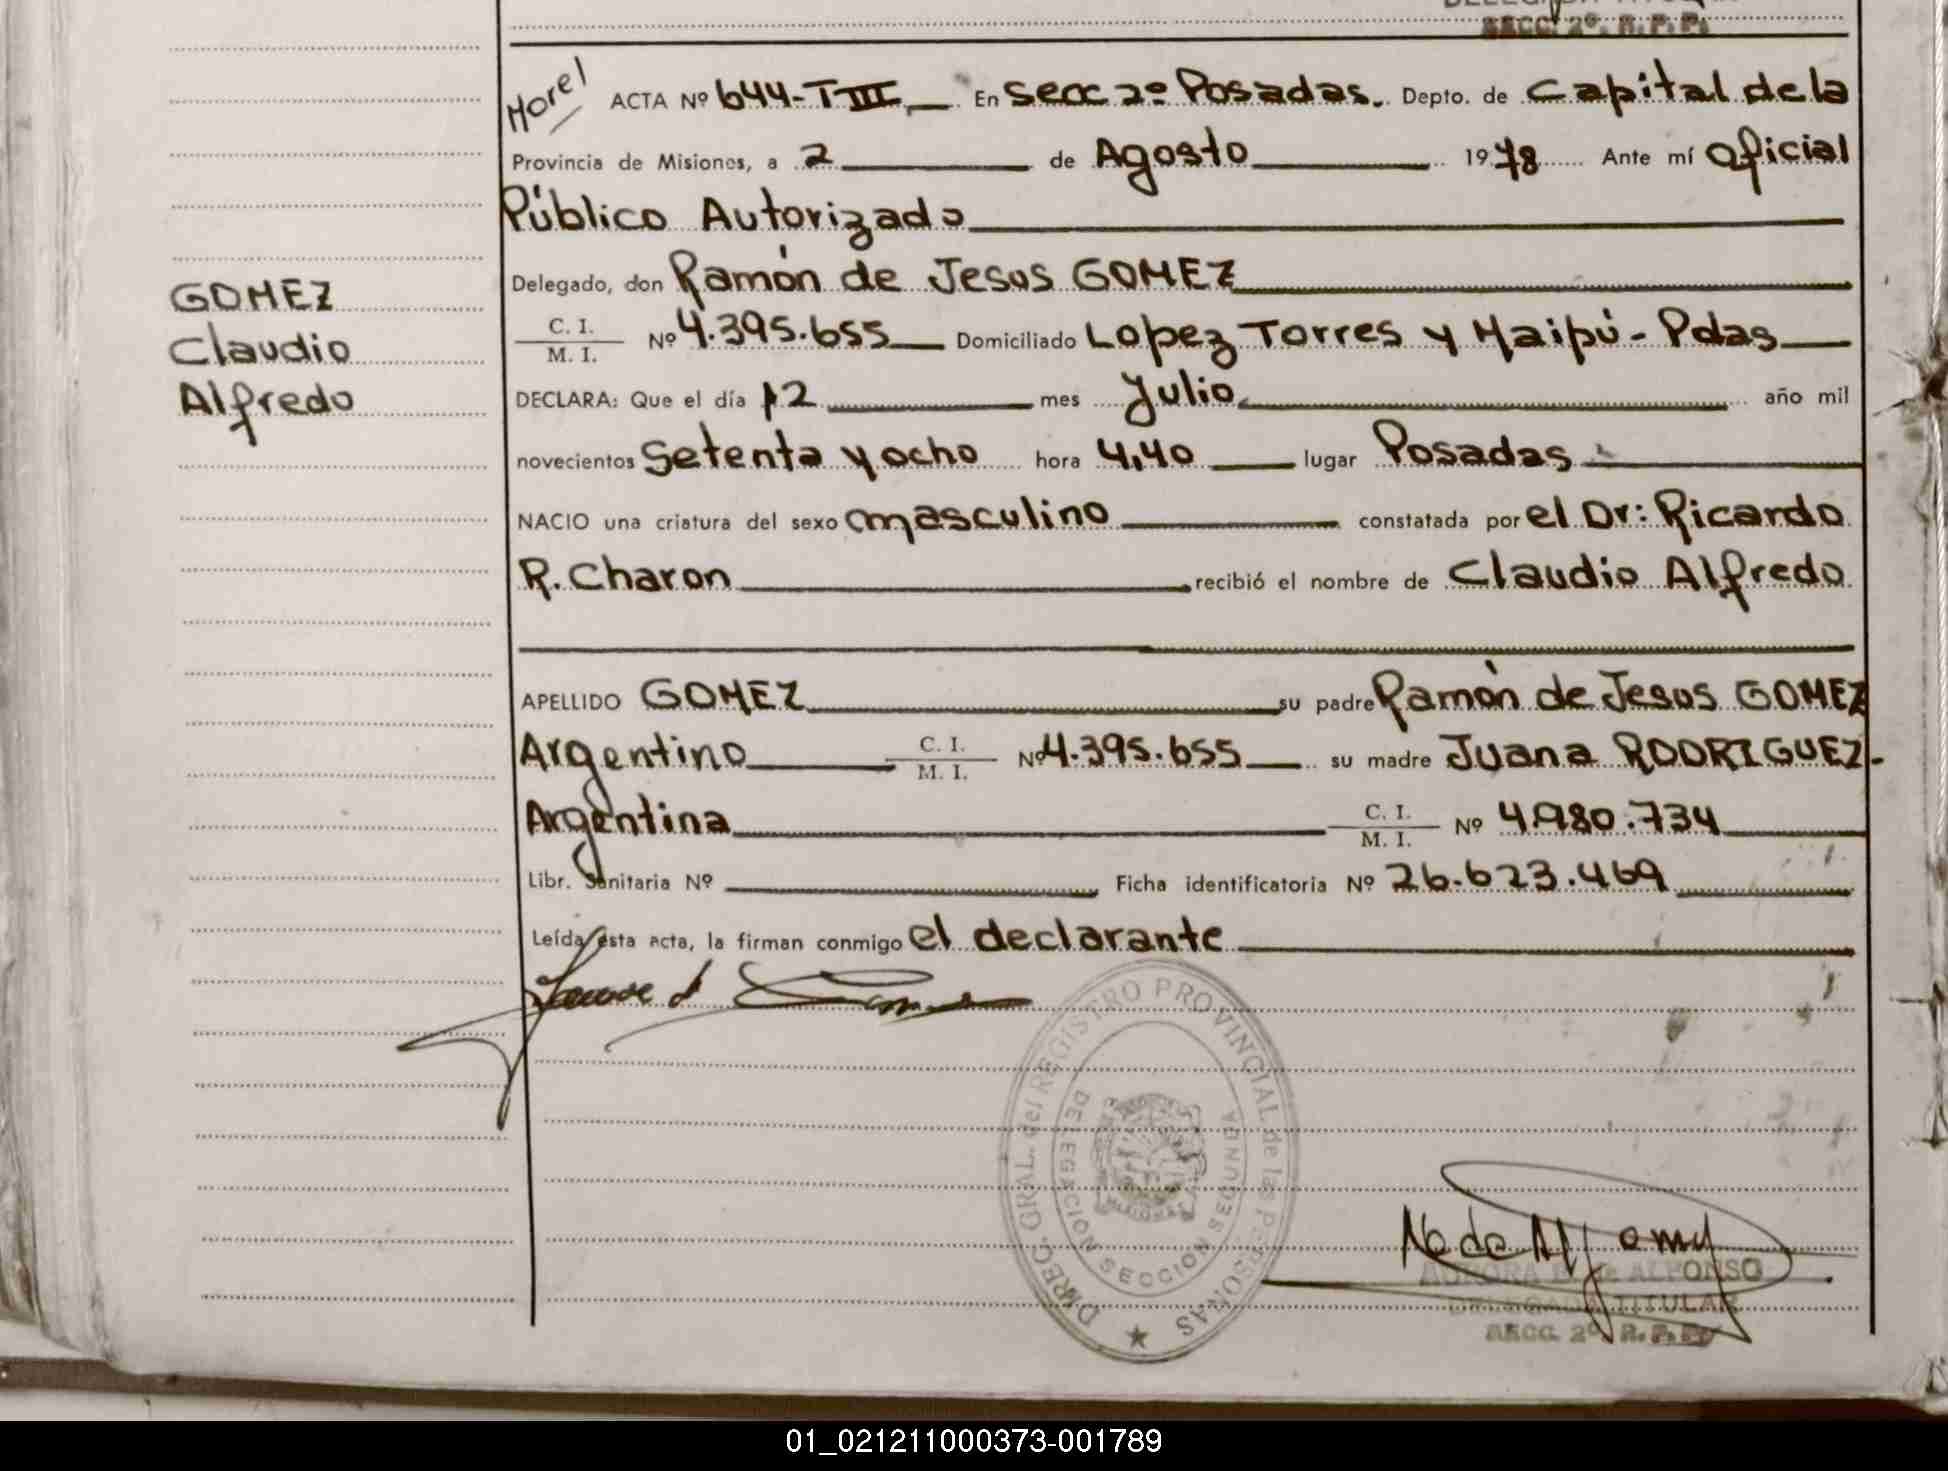 SECC. 2º. R. P. P.
Morel
ACTA Nº 644-T III En Secc 2º Posadas. Depto. de Capital de la
Provincia de Misiones, a 2 de Agosto 1978 Ante mí Oficial
Público Autorizado
GOMEZ
Claudio
Alfredo
Delegado, don Ramón de Jesus GOMEZ
C. I.
M. I. Nº 4.395.655 Domiciliado Lopez Torres y Maipú - Pdas
DECLARA: Que el día 12 mes Julio año mil
novecientos Setenta y ocho hora 4,40 lugar Posadas
NACIO una criatura del sexo masculino constatada por el Dr: Ricardo
R. Charon recibió el nombre de Claudio Alfredo
APELLIDO GOMEZ su padre Ramón de Jesus GOMEZ
Argentino C. I.
M. I. Nº 4.395.655 su madre Juana RODRIGUEZ-
Argentina C. I.
M. I. Nº 4.980.734
Libr. Sanitaria Nº Ficha identificatoria Nº 26.623.469
Leída esta acta, la firman conmigo el declarante
DIREC. GRAL. del REGISTRO PROVINCIAL de las PERSONAS
DELEGACION SECCION SEGUNDA
MISIONES
AURORA de ALFONSO
DELEGADA TITULAR
SECC. 2º R. P. P.
01_021211000373-001789